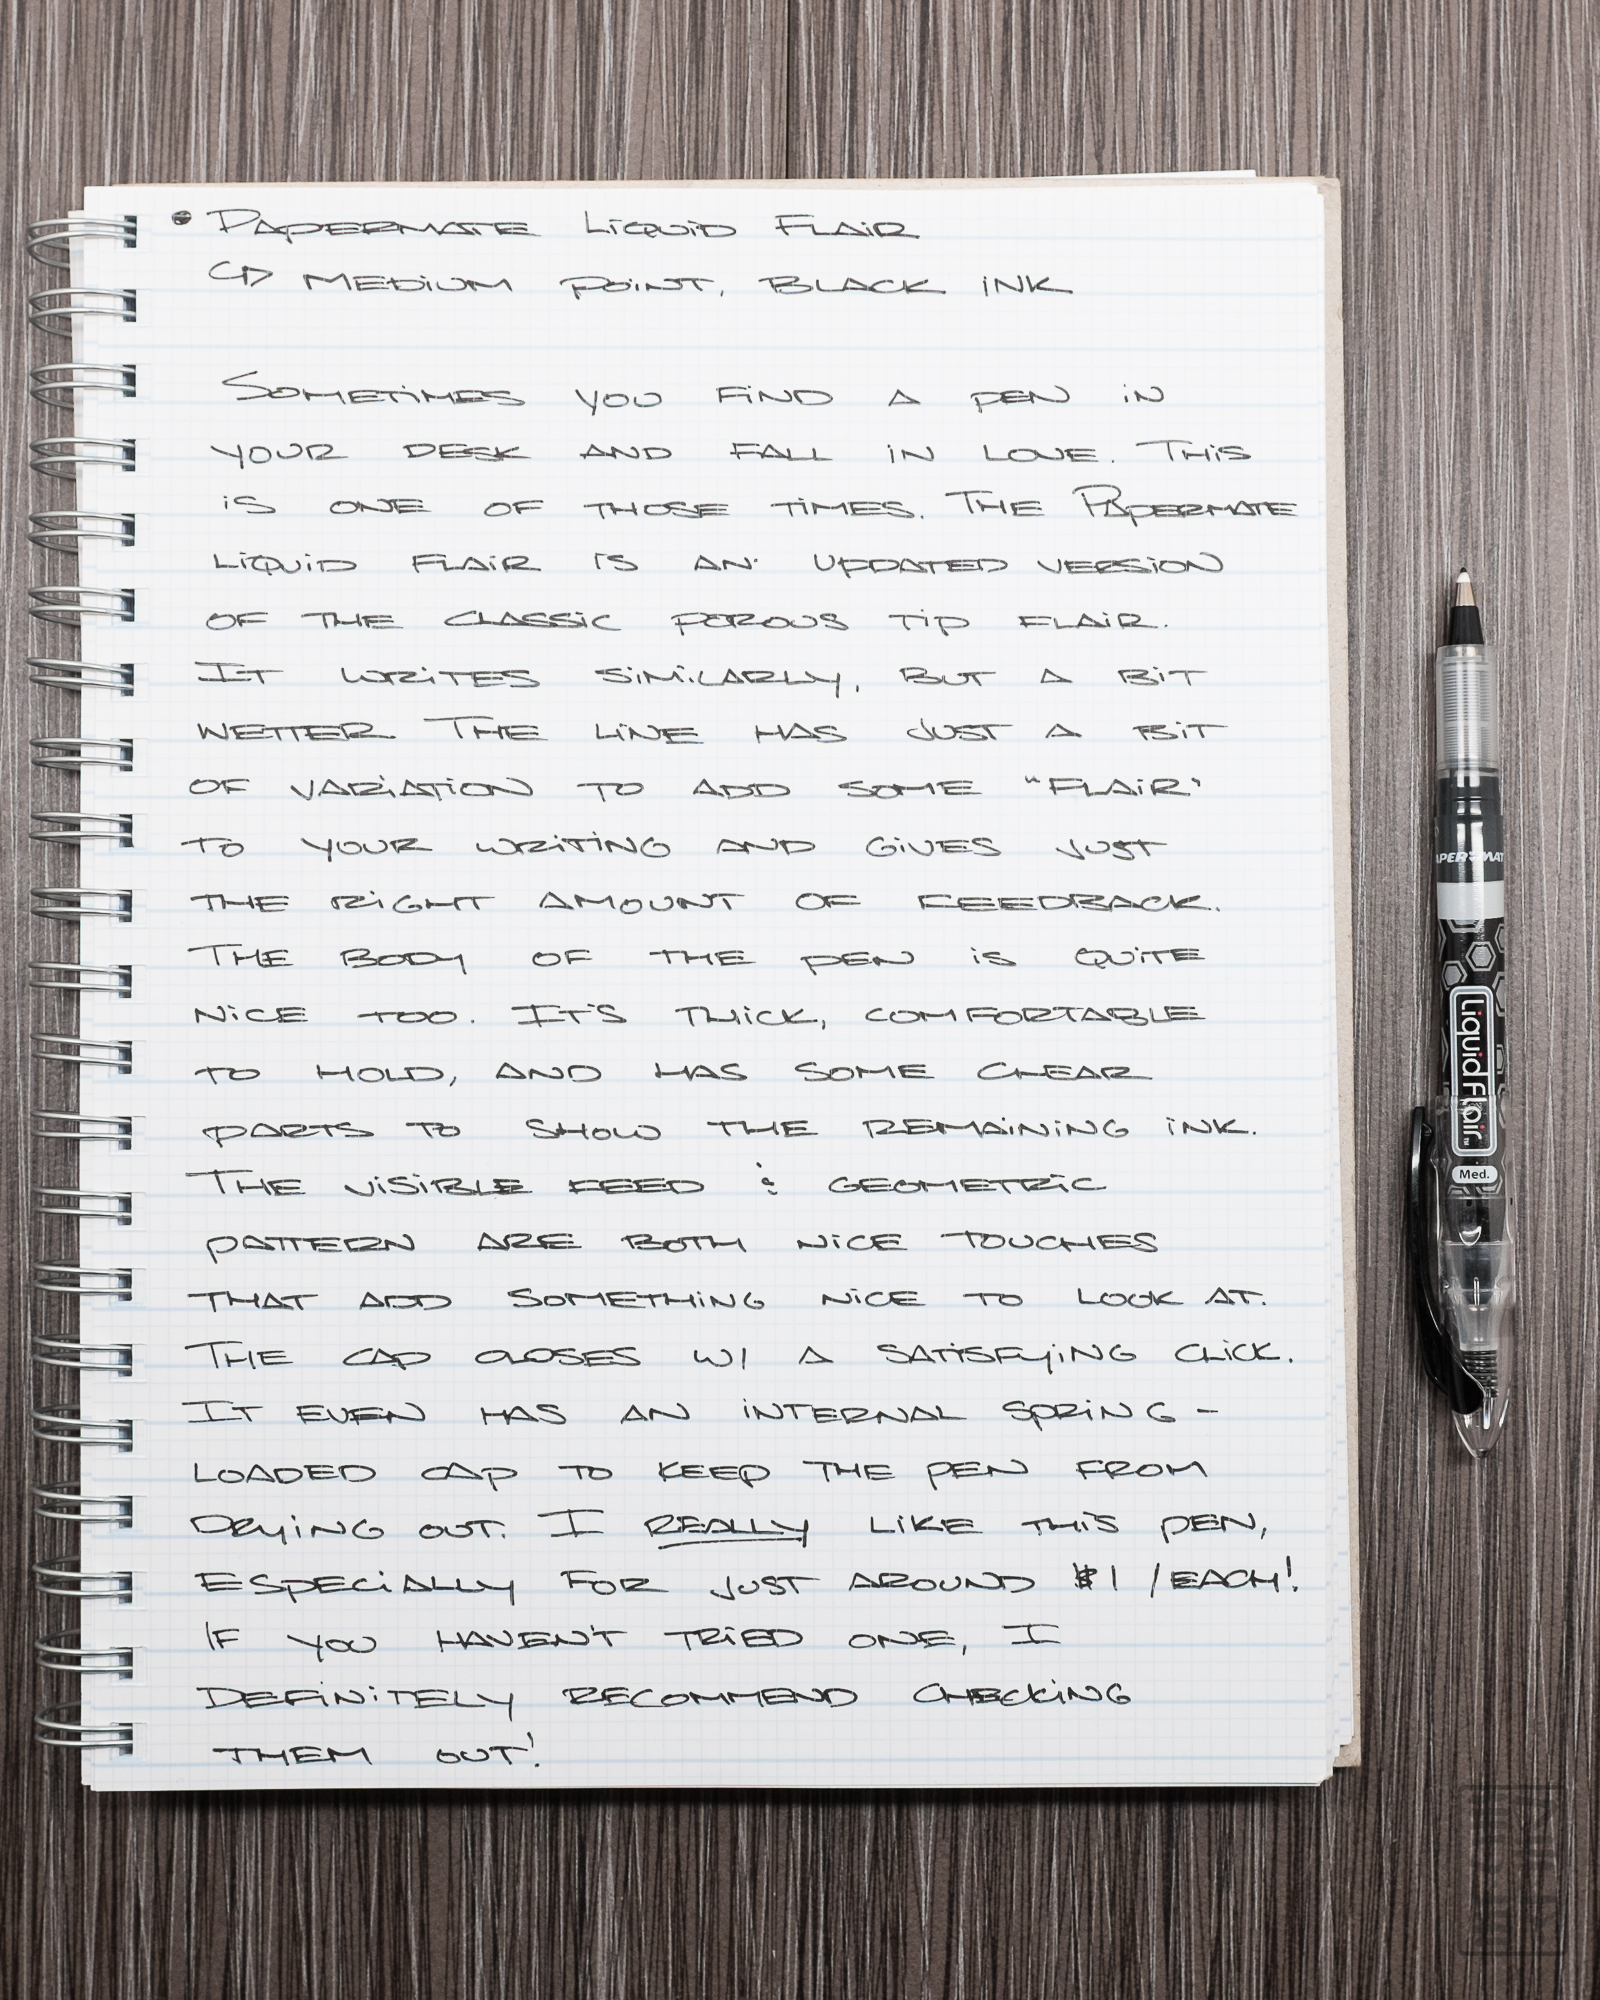 • Papermate Liquid Flair
↳ Medium point, black ink
Sometimes you find a pen in
your desk and fall in love. This
is one of those times. The Papermate
Liquid Flair is an updated version
of the classic porous tip Flair.
It writes similarly, but a bit
wetter. The line has just a bit
of variation to add some "flair"
to your writing and gives just
the right amount of feedback.
The body of the pen is quite
nice too. It's thick, comfortable
to hold, and has some clear
parts to show the remaining ink.
The visible feed & geometric
pattern are both nice touches
that add something nice to look at.
The cap closes w/ a satisfying click.
It even has an internal spring-
loaded cap to keep the pen from
drying out. I really like this pen,
especially for just around $1/each!
If you haven't tried one, I
definitely recommend checking
them out!
APER MAT
Liquid Flair™
Med.